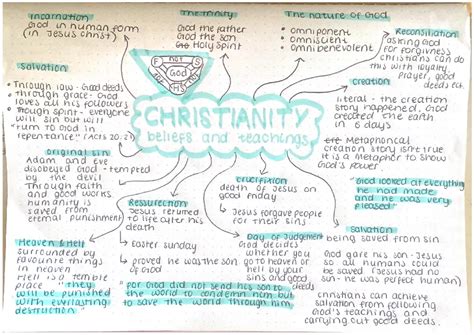 Incarnation
God in human form
(in Jesus Christ)
The Trinity
God the father
God the son
Holy Spirit
The nature of God
• omnipotent
• omniscient
• omnibenevolent
Reconciliation
asking God
for forgivness
christians can do
this with loyalty,
prayer, good deeds
etc
Salvation
• Through law - Good deeds
through grace - God
loves all his followers
though spirit - everyone
will sin but will
"turn to God in
repentance" (Acts 20:21)
F
S
not
God
is
HS
CHRISTIANITY
beliefs and teachings
creation
literal - the creation
story happened. God
created the earth
in 6 days
Metaphorical
creation story isn't true
it is a metaphor to show
God's power
"God looked at everything
he had made
and he was very
pleased"
original sin
Adam and Eve
disobeyed God - tempted
by the devil
Through faith
and good works
humanity is
saved from
eternal punishment
Ressurection
Jesus returned
to life after his
death
→ Easter Sunday
→ proved he was the son
of God
crucifixion
death of Jesus on
good friday
→ Jesus forgave people
for their sins
Day of Judgement
God decides
whether you
go to heaven or
hell by your
sins and good
deeds
Salvation
being saved from sin
God gave his son - Jesus
so all humans could
be saved (Jesus had no
sin - he was perfect human)
christians can achieve
salvation from following
God's teachings and
carrying out good deeds.
Heaven & Hell
surrounded by
favourite things
in heaven
Hell is a terrible
place "they
will be punished
with everlasting
destruction"
"for God did not send his son to
the world to condemn him but
to save the world through him